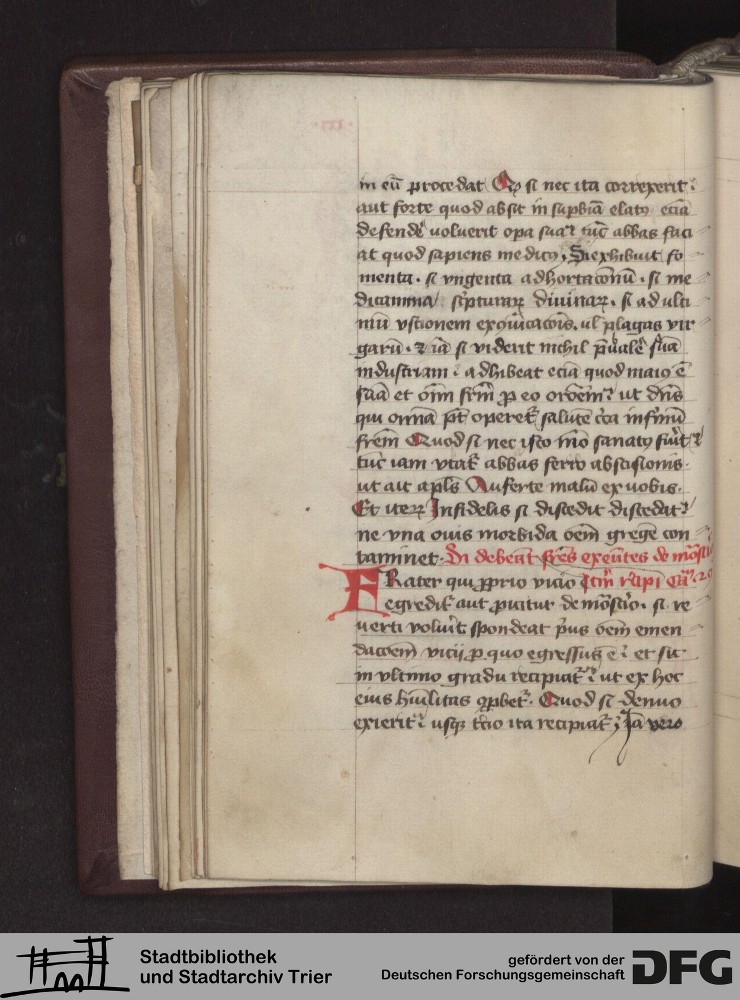 in eū procedat Qđ si nec ita correxerit
aut forte quod absit in supbiā elatꝰ eciā
defendeͤ voluerit opa sua tūc abbas faci
at quod sapiens medicꝰ, Si exhibuit fo
menta · si vngenta adhortacōnū · si me
dicamina scͥpturaꝝ diuinaꝝ · si ad ulti
mū vstionem excōicacōis · ul̓ plagas vir
garū · ⁊ iā si viderit nichil p̄ualeͤ suā
industriam adhibeat eciā quod maio ē
suā et oīm frm̄ p eo orōem ut dn̄s
qui omnia pt̄ operet̉ salutē circa infirmū
frēm Quod si nec isto mō sanatꝰ fuerit
tūc iam vtat̉ abbas ferro abscisionis ·
ut ait apl̄s Auferte malū ex vobis ·
Et iteꝝ Infidelis si discedit discedat
ne vna ouis morbida oēm gregē con
taminet · Si debeāt fres exeūtes de mōstͥio
FRater qui ꝓprio vicio Itm̄ recipi Ca
egredit̉ aut ꝓicitur de mōstio · si re
uerti voluit spondeat pͥus oēm emen
dacōem vicij p quo egressus ē et sic
in vltimo gradu recipiat̉ ut ex hoc
eius hūilitas ꝯprobet̉ · Quod si denuo
exierit usqꝫ tͥcio ita recipiat̉ Iā vero
Stadtbibliothek
und Stadtarchiv Trier
gefördert von der
Deutschen Forschungsgemeinschaft
DFG